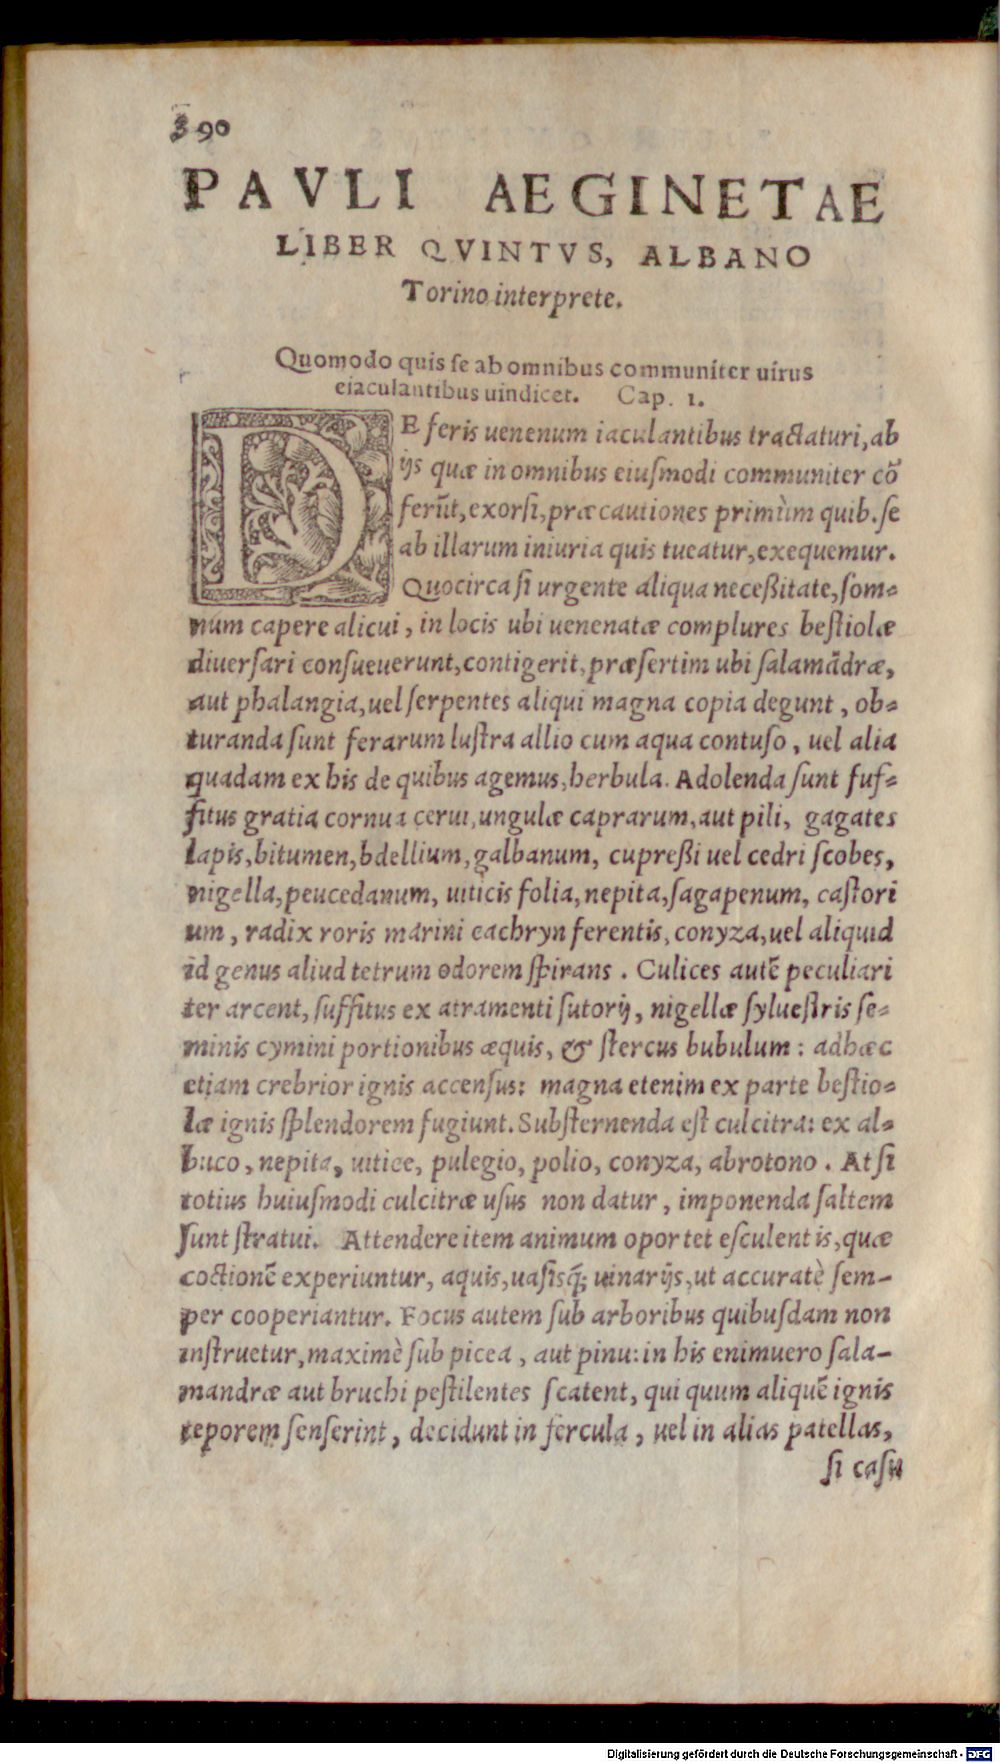 390
PAVLI AEGINETAE
LIBER QVINTVS, ALBANO
Torino interprete.
Quomodo quis se ab omnibus communiter uirus
eiaculantibus uindicet. Cap. 1.
DE feris uenenum iaculantibus tractaturi, ab
ijs quæ in omnibus eiuſmodi communiter cō
ferūt, exorſi, præcautiones primùm quib. ſe
ab illarum iniuria quis tueatur, exequemur.
Quocirca ſi urgente aliqua neceßitate, ſom-
num capere alicui, in locis ubi uenenatæ complures beſtiolæ
diuerſari conſueuerunt, contigerit, præſertim ubi ſalamādræ,
aut phalangia, uel ſerpentes aliqui magna copia degunt, ob-
turanda ſunt ferarum luſtra allio cum aqua contuſo, uel alia
quadam ex his de quibus agemus, herbula. Adolenda ſunt ſuf-
fitus gratia cornua cerui, ungulæ caprarum, aut pili, gagates
lapis, bitumen, bdellium, galbanum, cupreßi uel cedri ſcobes,
nigella, peucedanum, uiticis folia, nepita, ſagapenum, caſtori
um, radix roris marini cachryn ferentis, conyza, uel aliquid
id genus aliud tetrum odorem ſpirans. Culices autē peculiari
ter arcent, ſuffitus ex atramenti ſutorij, nigellæ ſylueſtris ſe-
minis cymini portionibus æquis, & ſtercus bubulum: adhæc
etiam crebrior ignis accenſus: magna etenim ex parte beſtio-
læ ignis ſplendorem fugiunt. Subſternenda eſt culcitra: ex al-
buco, nepita, uitice, pulegio, polio, conyza, abrotono. At ſi
totius huiuſmodi culcitræ uſus non datur, imponenda ſaltem
ſunt ſtratui. Attendere item animum oportet eſculentis, quæ
coctionē experiuntur, aquis, uaſisq́; uinarijs, ut accuratè ſem-
per cooperiantur. Focus autem ſub arboribus quibuſdam non
inſtruetur, maximè ſub picea, aut pinu: in his enimuero ſala-
mandræ aut bruchi peſtilentes ſcatent, qui quum aliquē ignis
teporem ſenſerint, decidunt in fercula, uel in alias patellas,
ſi caſu
Digitalisierung gefördert durch die Deutsche Forschungsgemeinschaft - DFG